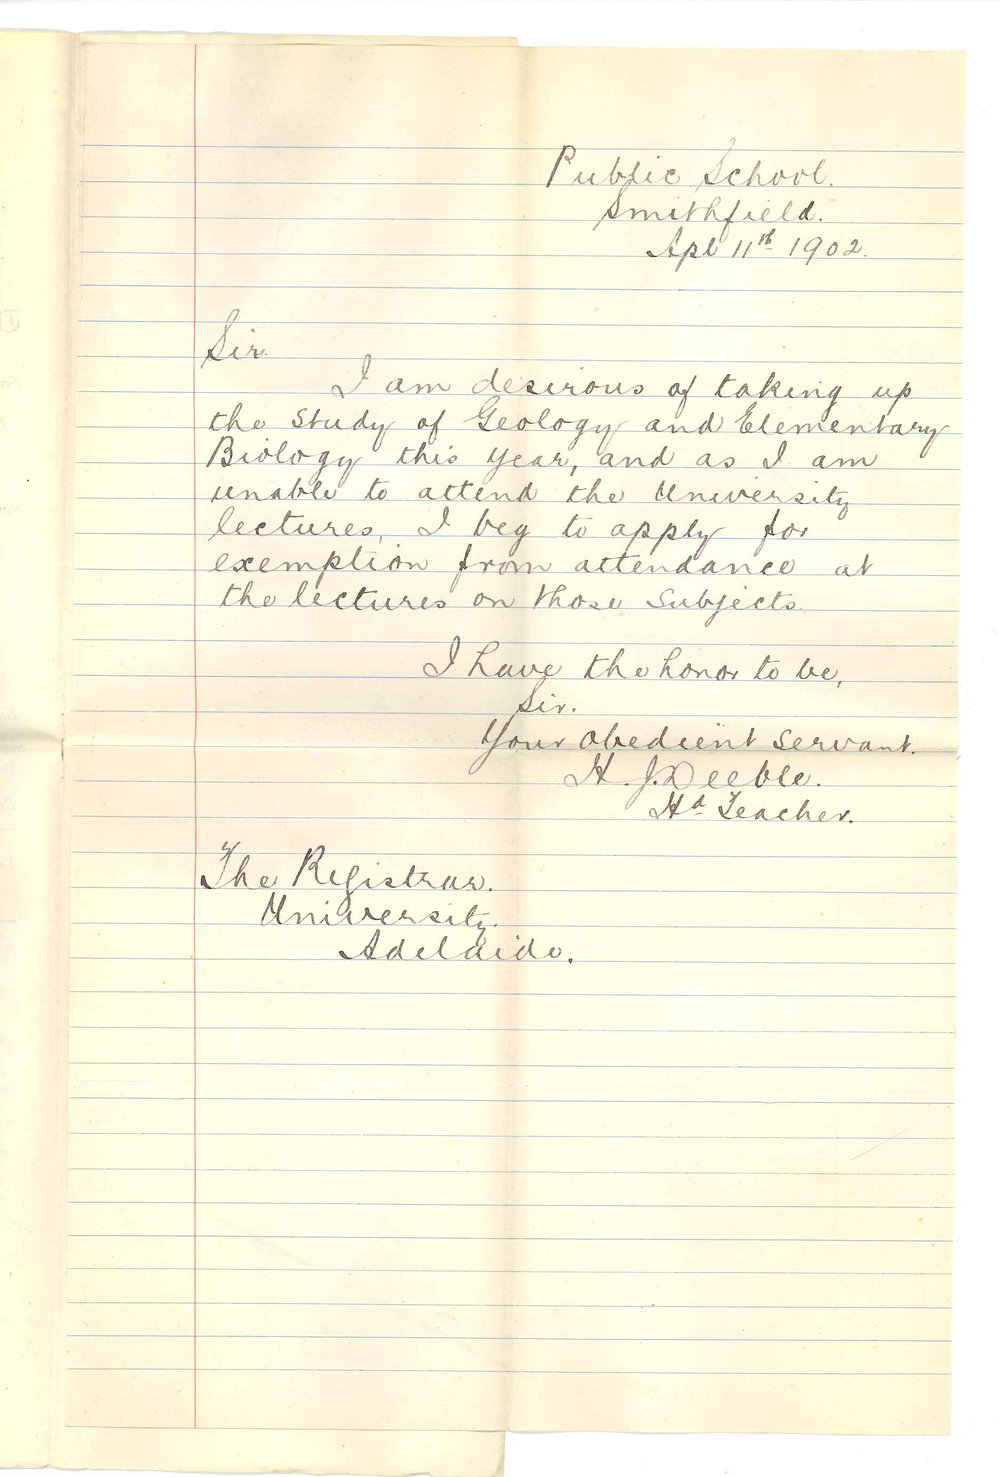 Public School.
Smithfield.
Apl 11th 1902.
Sir.
I am desirous of taking up
the study of Geology and Elementary
Biology this year, and as I am
unable to attend the University
lectures, I beg to apply for
exemption from attendance at
the lectures on those subjects.
I have the honor to be,
Sir.
Your obedient servant.
H. J. Deeble.
Hd Teacher.
The Registrar.
University.
Adelaide.